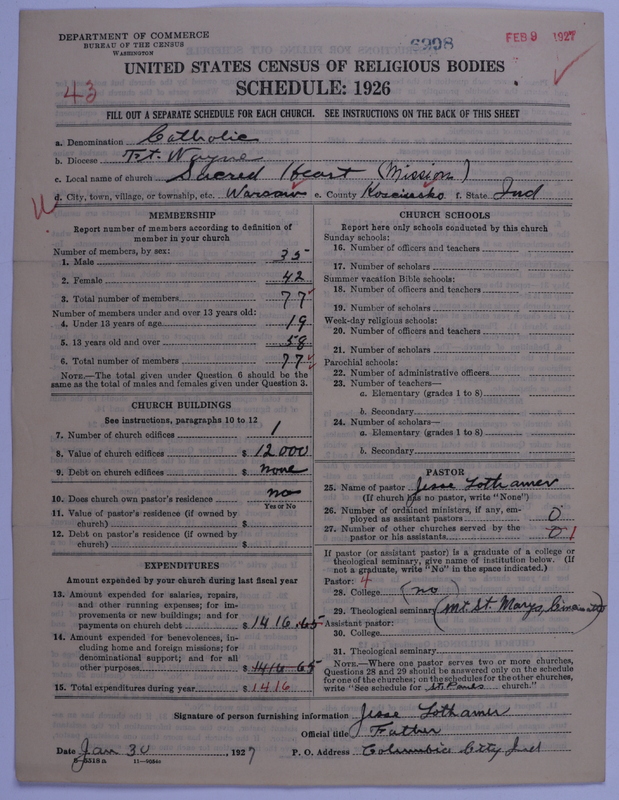 DEPARTMENT OF COMMERCE
BUREAU OF THE CENSUS
WASHINGTON
6998
FEB 9 1927
UNITED STATES CENSUS OF RELIGIOUS BODIES
43
SCHEDULE: 1926
FILL OUT A SEPARATE SCHEDULE FOR EACH CHURCH. SEE INSTRUCTIONS ON THE BACK OF THIS SHEET
a. Denomination Catholic
b. Diocese Ft. Wayne
c. Local name of church Sacred Heart (Mission)
d. City, town, village, or township, etc. Warsaw e. County Kosciusko f. State Ind
MEMBERSHIP
Report number of members according to definition of
member in your church
Number of members, by sex:
1. Male 35
2. Female 42
3. Total number of members 77
Number of members under and over 13 years old:
4. Under 13 years of age 19
5. 13 years old and over 58
6. Total number of members 77
NOTE.—The total given under Question 6 should be the
same as the total of males and females given under Question 3.
CHURCH BUILDINGS
See instructions, paragraphs 10 to 12
7. Number of church edifices 1
8. Value of church edifices $ 12000
9. Debt on church edifices $ none
10. Does church own pastor's residence no
Yes or No
11. Value of pastor's residence (if owned by
church) $
12. Debt on pastor's residence (if owned by
church) $
EXPENDITURES
Amount expended by your church during last fiscal year
13. Amount expended for salaries, repairs,
and other running expenses; for im-
provements or new buildings; and for
payments on church debt $ 1416.65
14. Amount expended for benevolences, in-
cluding home and foreign missions; for
denominational support; and for all
other purposes $ 1416 65
15. Total expenditures during year $ 1416
CHURCH SCHOOLS
Report here only schools conducted by this church
Sunday schools:
16. Number of officers and teachers
17. Number of scholars
Summer vacation Bible schools:
18. Number of officers and teachers
19. Number of scholars
Week-day religious schools:
20. Number of officers and teachers
21. Number of scholars
Parochial schools:
22. Number of administrative officers
23. Number of teachers—
a. Elementary (grades 1 to 8)
b. Secondary
24. Number of scholars—
a. Elementary (grades 1 to 8)
b. Secondary
PASTOR
25. Name of pastor Jesse Lothamer
(If church has no pastor, write "None")
26. Number of ordained ministers, if any, em-
ployed as assistant pastors 0
27. Number of other churches served by the
pastor or his assistants 0 1
If pastor (or assistant pastor) is a graduate of a college or
theological seminary, give name of institution below. (If
not a graduate, write "No" in the space indicated.)
Pastor: 4
28. College (no)
29. Theological seminary (Mt. St. Marys, Cincinnati)
Assistant pastor:
30. College
31. Theological seminary
NOTE.—Where one pastor serves two or more churches,
Questions 28 and 29 should be answered only on the schedule
for one of the churches; on the schedules for the other churches,
write "See schedule for St. Pauls church."
Signature of person furnishing information Jesse Lothamer
Official title Father
Date Jan 30, 1927 P. O. Address Columbia City Ind
8-5318a 11-9054c